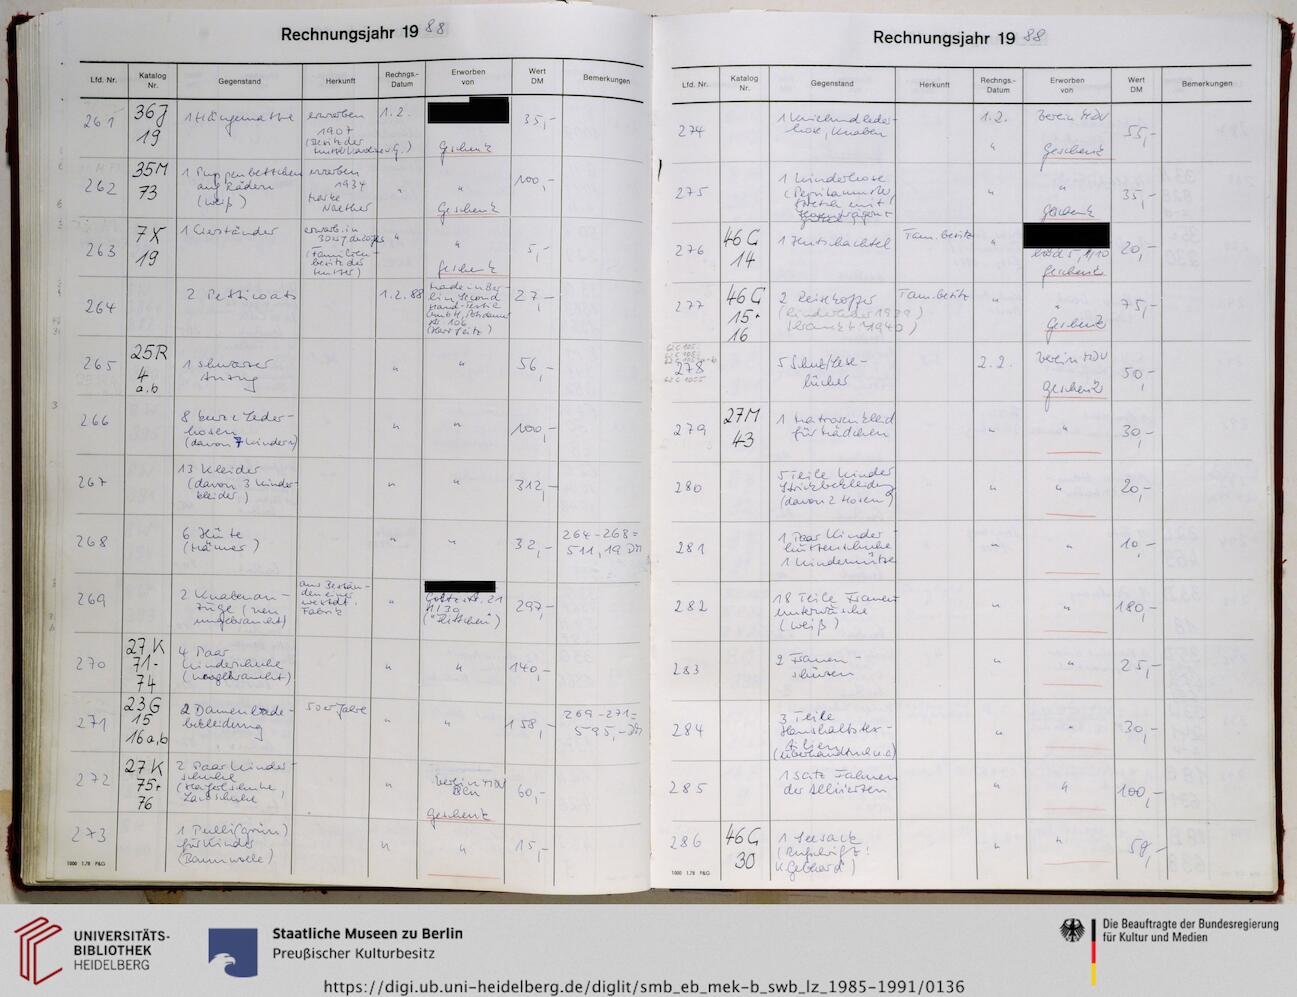 Rechnungsjahr 1988
Lfd. Nr.
Katalog Nr.
Gegenstand
Herkunft
Rechngs.-Datum
Erworben von
Wert DM
Bemerkungen
261
36J
19
1 Hängematte
erworben
1907
1.2.
Geschenk
35,-
262
35M
73
1 Puppenbettchen
auf Rädern
(weiß)
erworben
1934
Marke
Naether
"
"
Geschenk
100,-
263
7X
19
"
"
Geschenk
5,-
264
2 Petticoats
1.2.88
made in Ber-
lin Second
Hand-
GmbH, Potsdamer
Str. 106
27,-
265
25R
4
a.b
1 schwarzer
Anzug
"
"
56,-
266
8 kurze Leder-
hosen
(davon 7 Kinder)
"
"
100,-
267
13 Kleider
(davon 3 Kinder-
kleider)
"
"
312,-
268
6 Hüte
(Männer)
"
"
32,-
264-268=
511,19 DM
269
2 Knabenan-
züge (neu
ungebraucht)
aus Bestän-
den einer
westdt.
Fabrik
"
Goltzstr. 21
1/30
297,-
270
27 K
71-
74
4 Paar
Kinderschuhe
(ungebraucht)
"
"
140,-
271
23G
15
16a,b
2 Damenbade-
bekleidung
50er Jahre
"
"
158,-
269-271=
595,- DM
272
27K
75+
76
2 Paar Kinder-
schuhe
(Haferlschuhe,
Lackschuhe
"
Verein MDV
Bln
Geschenk
60,-
273
1 Pulli (grün)
für Kinder
(Baumwolle)
"
"
15,-
1000 1.78 P&G
Rechnungsjahr 1988
Lfd. Nr.
Katalog Nr.
Gegenstand
Herkunft
Rechngs.-Datum
Erworben von
Wert DM
Bemerkungen
274
1 Kniebundleder-
hose, Knaben
1.2.
"
Verein MDV
Geschenk
55,-
275
1 Kinderhose
(Pepitamuster
Stretch mit
"
Geschenk
35,-
276
46G
14
1 Hutschachtel
Fam.besitz
"
Geschenk
20,-
277
46G
15+
16
2 Reisekoffer
(Rindleder 1939
1940)
Fam.besitz
"
"
Geschenk
75,-
278
5 Schul/Lese-
bücher
2.2.
Verein MDV
Geschenk
50,-
279
27M
43
1 Matrosenkleid
für Mädchen
"
"
30,-
280
5 Teile Kinder
Strickbekleidung
(davon 2 Hosen)
"
"
20,-
281
1 Paar Kinder
hüttenschuhe
1 Kindermütze
"
"
10,-
282
18 Teile Frauen-
unterwäsche
(weiß)
"
"
180,-
283
2 Frauen-
schürzen
"
"
25,-
284
3 Teile
Haushaltstex-
tilien
(Überhandtuch u.a)
"
"
30,-
285
1 Satz Fahnen
der Alliierten
"
"
100,-
286
46G
30
1 Seesack
(Aufschrift:
K. Gebhard)
"
"
50,-
1000 1.78 P&G
UNIVERSITÄTS-
BIBLIOTHEK
HEIDELBERG
Staatliche Museen zu Berlin
Preußischer Kulturbesitz
Die Beauftragte der Bundesregierung
für Kultur und Medien
https://digi.ub.uni-heidelberg.de/diglit/smb_eb_mek-b_swb_lz_1985-1991/0136